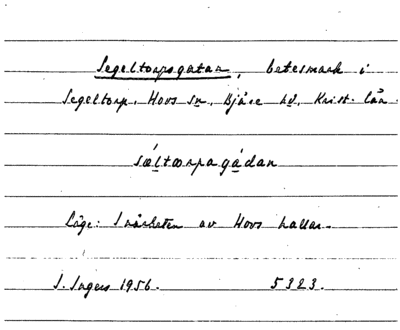 Segeltorpsgatan, betesmark i
Segeltorp, Hovs sn, Bjäre hd, Krist. län.
sǽltærpagádan
Läge: I närheten av Hovs hallar.
I. Ingers 1956. 5323.